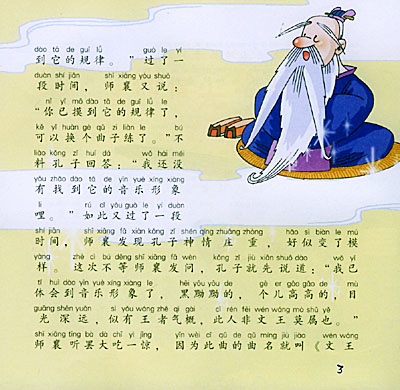 dào tā de guī lǜ guò le yí
到它的规律。”过了一
duàn shí jiān shī xiāng yòu shuō
段时间，师襄又说：
nǐ yǐ mō dào tā de guī lǜ le
“你已摸到它的规律了，
kě yǐ huàn gè qǔ zi liàn le bú
可以换个曲子练了。”不
liào kǒng zǐ huí dá wǒ hái méi
料孔子回答：“我还没
yǒu zhǎo dào tā de yīn yuè xíng xiàng
有找到它的音乐形象
li rú cǐ yòu guò le yí duàn
哩。”如此又过了一段
shí jiān shī xiāng fā xiàn kǒng zǐ shén qíng zhuāng zhòng hǎo sì biàn le mú
时间，师襄发现孔子神情庄重，好似变了模
yàng zhè cì bù děng shī xiāng fā wèn kǒng zǐ jiù xiān shuō dào wǒ yǐ
样。这次不等师襄发问，孔子就先说道：“我已
tǐ huì dào yīn yuè xíng xiàng le hēi yǒu yǒu de gè er gāo gāo de mù
体会到音乐形象了，黑黝黝的，个儿高高的，目
guāng shēn yuǎn sì yǒu wáng zhě qì gài cǐ rén fēi wén wáng mò shǔ yě
光深远，似有王者气概，此人非文王莫属也。”
shī xiāng tīng bà dà chī yì jīng yīn wèi cǐ qǔ de qǔ míng jiù jiào wén wáng
师襄听罢大吃一惊，因为此曲的曲名就叫《文王
3